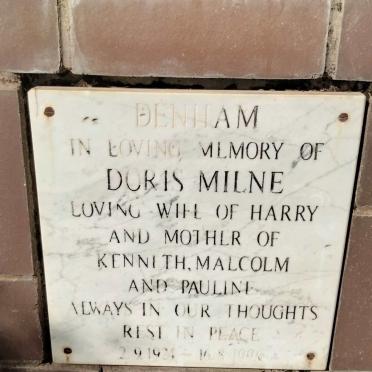 DENHAM
IN LOVING MEMORY OF
DORIS MILNE
LOVING WIFE OF HARRY
AND MOTHER OF
KENNETH, MALCOLM
AND PAULINE
ALWAYS IN OUR THOUGHTS
REST IN PEACE